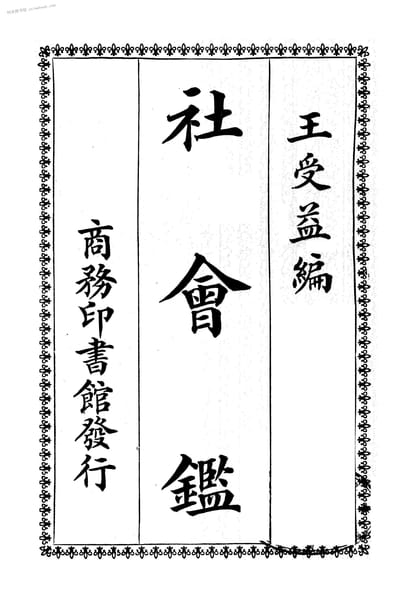 王受益編
社會鑑
商務印書館發行